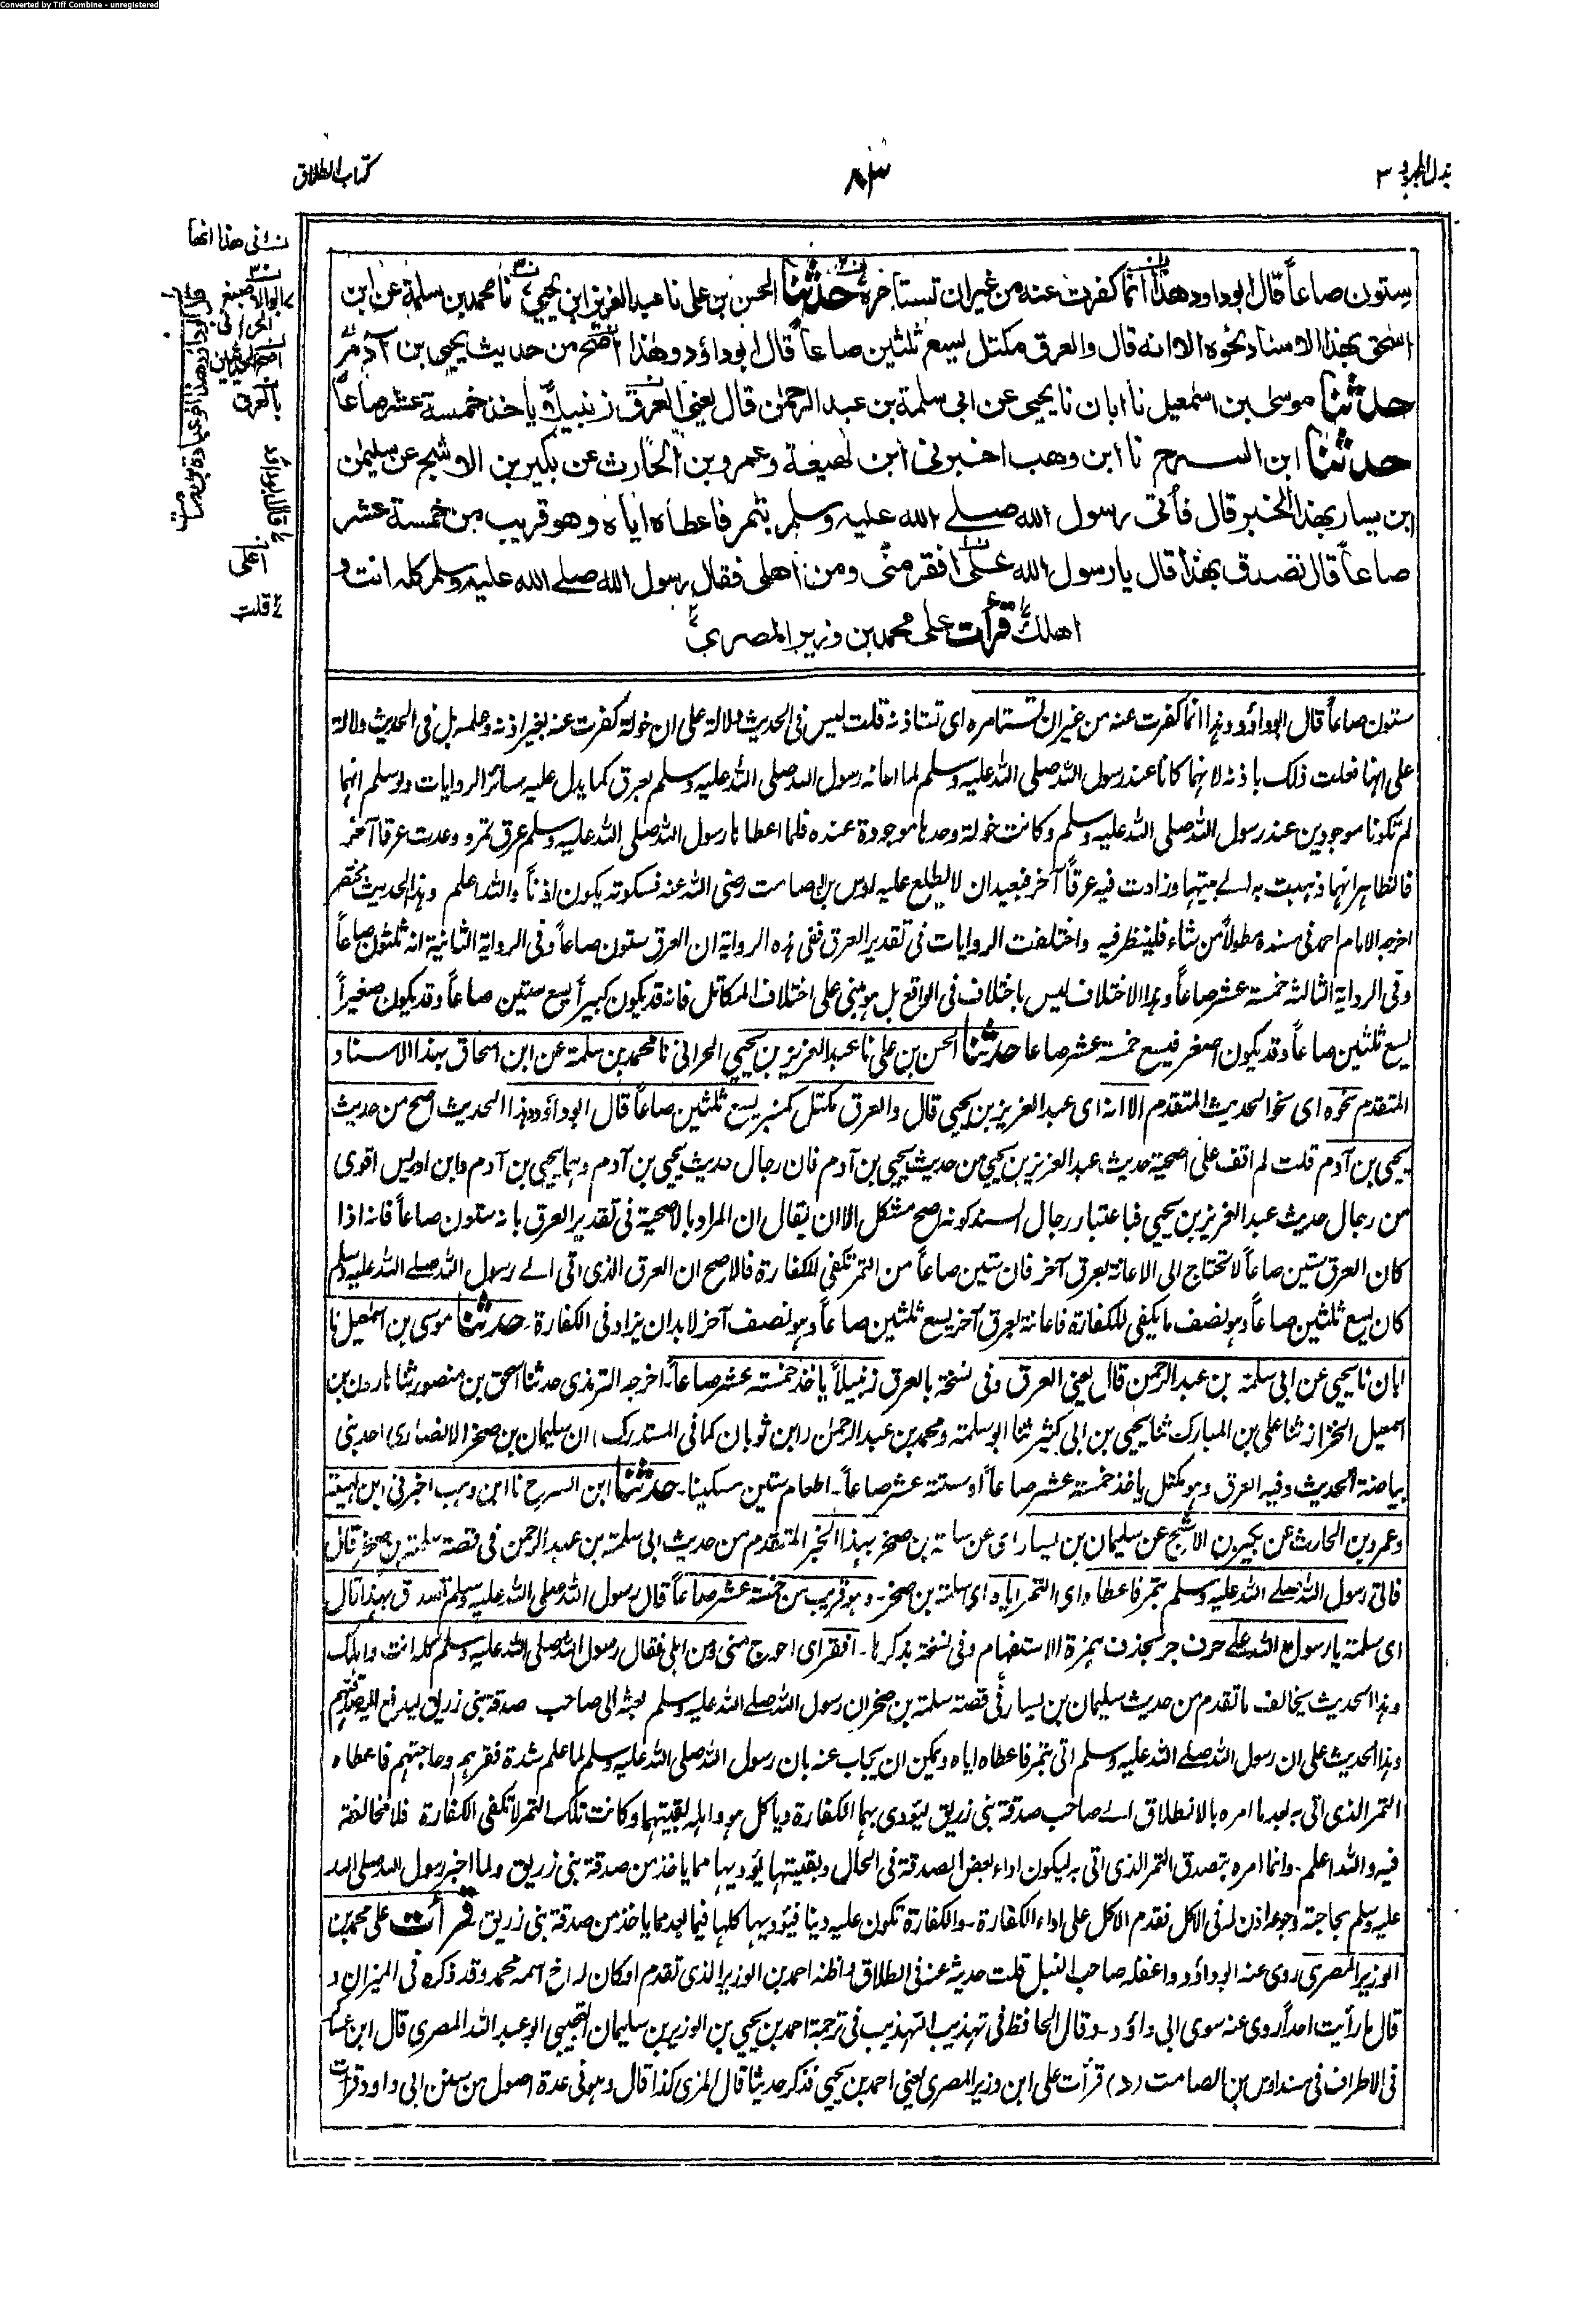 Converted by Tiff Combine - unregistered
بذل المجهود ٣
٨٣
كتاب الطلاق
ستون صاعاً قال ابوداود هذا انما كفرت عنه من غيران تستأمره حدثنا الحسن بن على نا عبد العزيز ابن يحيى نا محمد بن سلمة عن ابن
اسحٰق بهذا الاسناد نحوه الا انه قال والعرق مكتل يسع ثلثين صاعاً قال ابوداؤد وهٰذا اصح من حديث يحيى بن آدم
حدثنا موسى بن اسمٰعيل نا ابان نا يحيى عن ابى سلمة بن عبد الرحمٰن قال يعنى العرق زنبيلاً ياخذ خمسة عشر صاعاً
حدثنا ابن السرح نا ابن وهب اخبرنى ابن لهيعة وعمرو بن الحارث عن بكير بن الاشج عن سليمٰن
ابن يسار بهذا الخبر قال فأتى رسول الله صلے الله عليه وسلم بتمر فاعطاه اياه وهو قريب من خمسة عشر
صاعاً قال تصدق بهٰذا قال يا رسول الله علىٰ افقر منى ومن اهلى فقال رسول الله صلے الله عليه وسلم كله انت و
اهلك قرأت على محمد بن وزير المصرى
ستون صاعاً قال ابوداؤد وهذا انما كفرت عنه من غيران تستامره اى تستاذنه قلت ليس فى الحديث دلالة على ان خولة كفرت عنه بغير اذنه وعلمه بل فى الحديث دلالة
على انها فعلت ذلك باذنه لانهما كانا عند رسول الله صلى الله عليه وسلم لما اعانه رسول الله صلى الله عليه وسلم بعرق كما يدل عليه سائر الروايات ولو سلم انهما
لم تكونا موجودين عند رسول الله صلى الله عليه وسلم وكانت خولة وحدها موجودة عنده فلما اعطاها رسول الله صلى الله عليه وسلم عرق تمر ووعدت عرقا آخر
فالظاهر انها ذهبت به الے بيتها وزادت فيه عرقاً آخر فبعيد ان لا يطلع عليه اوس بن الصامت رضى الله عنه فسكوته يكون اذناً والله اعلم وهذا الحديث مختصر
اخرجه الامام احمد فى مسنده مطولاً من شاء فلينظر فيه واختلفت الروايات فى تقدير العرق ففى هذه الرواية ان العرق ستون صاعاً وفى الرواية الثانية انه ثلثون صاعاً
وفى الرواية الثالثة خمسة عشر صاعاً وهذا الاختلاف ليس باختلاف فى الواقع بل هو مبنى على اختلاف المكاتل فانه قد يكون كبيراً يسع ستين صاعاً وقد يكون صغيراً
يسع ثلثين صاعاً وقد يكون اصغر فيسع خمسة عشر صاعا حدثنا الحسن بن على نا عبد العزيز بن يحيى الحرانى نا محمد بن سلمة عن ابن اسحاق بهذا الاسناد
المتقدم نحوه اى نحو الحديث المتقدم الا انه اى عبد العزيز بن يحيى قال والعرق مكتل كمنبر يسع ثلثين صاعاً قال ابوداؤد وهذا الحديث اصح من حديث
يحيى بن آدم قلت لم اقف على اصحية حديث عبد العزيز بن يحيى من حديث يحيى بن آدم فان رجال حديث يحيى بن آدم وهما يحيى بن آدم وابن ادريس اقوى
من رجال حديث عبد العزيز بن يحيى فباعتبار رجال السند كونه اصح مشكل الا ان يقال ان المراد بالاصحية فى تقدير العرق بانه ستون صاعاً فانه اذا
كان العرق ستين صاعاً لا تحتاج الى الاعانة بعرق آخر فان ستين صاعاً من التمر تكفى للكفارة فالاصح ان العرق الذى اتى الے رسول الله صلے الله عليه وسلم
كان يسع ثلثين صاعاً وهو نصف ما يكفى للكفارة فاعانة بعرق آخر يسع ثلثين صاعاً وهو نصف آخر لابد ان يزاد فى الكفارة۔ حدثنا موسى بن اسمٰعيل نا
ابان نا يحيى عن ابى سلمة بن عبد الرحمن قال يعنى العرق وفى نسخة بالعرق زنبيلاً ياخذ خمسة عشر صاعاً اخرجه الترمذى حدثنا اسحق بن منصور ثنا هارون بن
اسمعيل الخزاز ثنا على بن المبارك ثنا يحيى بن ابى كثير ثنا ابو سلمة ومحمد بن عبد الرحمٰن (ابن ثوبان كما فى المستدرك) ان سليمان بن صخر الانصارى احد بنى
بياضة الحديث وفيه العرق وهو مكتل ياخذ خمسة عشر صاعاً او ستة عشر صاعاً۔ اطعام ستين مسكينا۔ حدثنا ابن السرح نا ابن وهب اخبرنى ابن لهيعة
وعمرو بن الحارث عن بكير بن الاشج عن سليمان بن يسار اى عن سلمة بن صخر بهذا الخبر المتقدم من حديث ابى سلمة بن عبد الرحمن فى قصة سلمة بن صخر قال
فاتى رسول الله صلے الله عليه وسلم بتمر فاعطاه اى التمر اياه اى سلمة بن صخر۔ وهو قريب من خمسة عشر صاعاً قال رسول الله صلى الله عليه وسلم تصدق بهذا قال
اى سلمة يا رسول الله على حرف جر بحذف همزة الاستفهام وفى نسخة بذكرها۔ افقر اى احوج منى ومن اهلى فقال رسول الله صلى الله عليه وسلم كله انت واهلك
وهذا الحديث يخالف ما تقدم من حديث سليمان بن يسار فى قصة سلمة بن صخر ان رسول الله صلے الله عليه وسلم بعثه الى صاحب صدقة بنى زريق ليدفع اليه صدقتهم
وهذا الحديث على ان رسول الله صلے الله عليه وسلم اتى بتمر فاعطاه اياه ويمكن ان يجاب عنه بان رسول الله صلى الله عليه وسلم لما علم شدة فقرهم وحاجتهم فاعطاه
التمر الذى اتى به بعد ما امره بالانطلاق الے صاحب صدقة بنى زريق ليؤدى بها الكفارة وياكل هو واهله بقيتها وكانت تلك التمر لا تكفى الكفارة فلا مخالفة
فيه والله اعلم۔ وانما امره بتصدق التمر الذى اتى به ليكون اداء بعض الصدقة فى الحال وبقيتها يؤديها مما ياخذ من صدقة بنى زريق ولما اخبر رسول الله صلى الله
عليه وسلم بحاجته وجوعه اذن له فى الاكل فقدم الاكل على اداء الكفارة۔ والكفارة تكون عليه دينا فيؤديها كلها فيما بعد مما ياخذ من صدقة بنى زريق قرأت على محمد بن
الوزير المصرى روى عنه ابوداؤد واغفله صاحب النبل قلت حديثه عنه فى الطلاق واظنه احمد بن الوزير الذى تقدم او كان له اخ اسمه محمد وقد ذكره فى الميزان و
قال ما رأيت احداً روى عنه سوى ابى داؤد۔ وقال الحافظ فى تهذيب التهذيب فى ترجمة احمد بن يحيى بن الوزير بن سليمان التجيبى ابو عبد الله المصرى قال ابن عساكر
فى الاطراف فى مسند اوس بن الصامت (د) قرأت على ابن وزير المصرى يعنى احمد بن يحيى فذكر حديثا قال المزى كذا قال وهو فى عدة اصول من سنن ابى داود قرأت
فى هذا انها
ابو الاصبغ
الحرانى
اصح الحديثين
بالعرق
قال ابوداؤد
أعلى
قلت